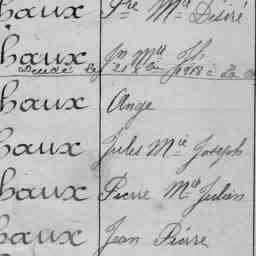 haux Pre Mie Désiré
haux Jn Mie Jh
Décédé le
haux Ange
haux Jules Mie Joseph
haux Pierre Mie Julien
haux Jean Pierre